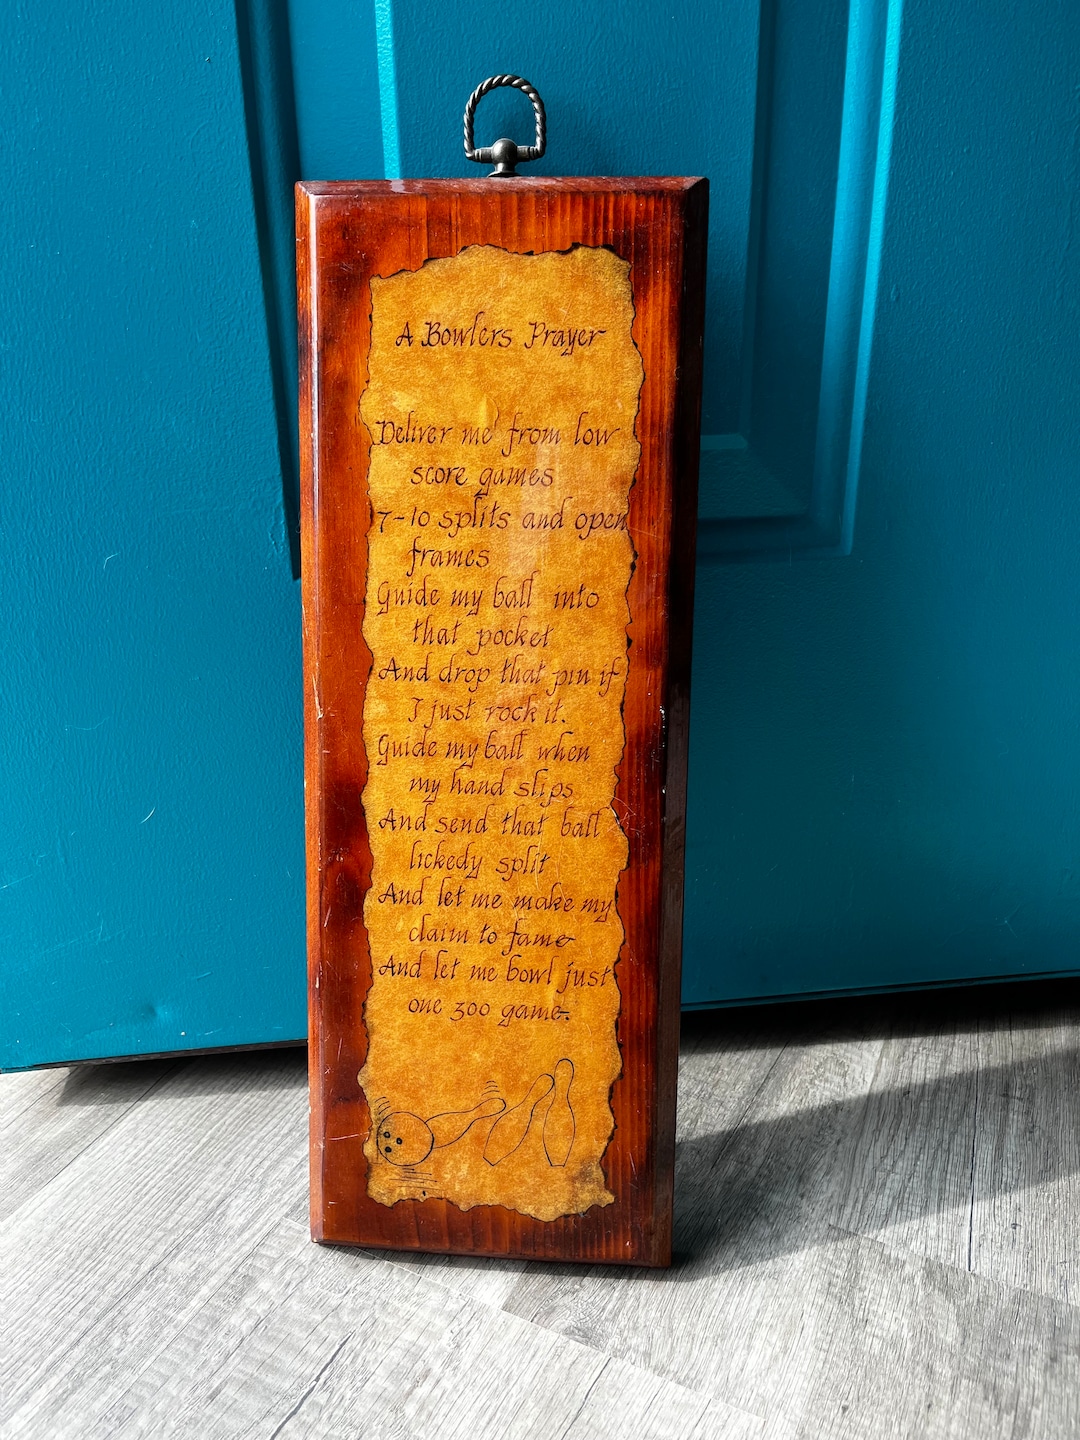 A Bowlers Prayer
Deliver me from low
score games
7-10 splits and open
frames
Guide my ball into
that pocket
And drop that pin if
I just rock it.
Guide my ball when
my hand slips
And send that ball
lickedy split
And let me make my
claim to fame
And let me bowl just
one 300 game.